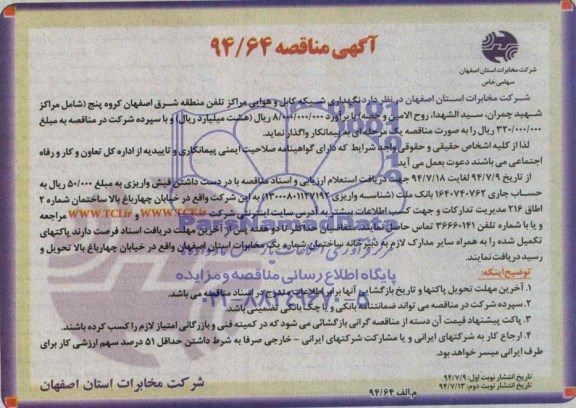 آگهی مناقصه ۹۴/۶۴
شرکت مخابرات استان اصفهان
سهامی خاص
شرکت مخابرات استان اصفهان در نظر دارد نگهداری شبکه کابل و هوایی مراکز تلفن منطقه شرق اصفهان گروه پنج (شامل مراکز
شهید چمران، سید الشهدا، روح الامین و حصه) با برآورد ۸/۰۰۰/۰۰۰/۰۰۰ ریال (هشت میلیارد ریال) و با سپرده شرکت در مناقصه به مبلغ
۳۳۰/۰۰۰/۰۰۰ ریال را به صورت مناقصه یک مرحله ای به پیمانکار واگذار نماید.
لذا از کلیه اشخاص حقیقی و حقوقی واجد شرایط که دارای گواهینامه صلاحیت ایمنی پیمانکاری و تاییدیه از اداره کل تعاون و کار و رفاه
اجتماعی می باشند دعوت بعمل می آید.
از تاریخ ۹۴/۷/۹ لغایت ۹۴/۷/۱۸ جهت دریافت استعلام ارزیابی و اسناد مناقصه با در دست داشتن فیش واریزی به مبلغ ۵۰/۰۰۰ ریال به
حساب جاری ۱۶۴۰۷۶۰۷۶۲ بانک ملت (شناسه واریزی ) به این شرکت واقع در خیابان چهارباغ بالا ساختمان شماره ۲
اطاق ۲۱۶ مدیریت تدارکات و جهت کسب اطلاعات بیشتر به آدرس سایت اینترنتی شرکت WWW.TCI.ir و WWW.TCI.ir مراجعه
و یا با شماره تلفن ۳۶۶۶۰۱۴۱ تماس حاصل نمایند. متقاضیان حداکثر تا دو هفته پس از آخرین مهلت دریافت اسناد فرصت دارند پاکتهای
تکمیل شده را به همراه سایر مدارک لازم به دبیرخانه ساختمان شماره یک مخابرات استان اصفهان واقع در خیابان چهارباغ بالا تحویل و
رسید دریافت نمایند.
پایگاه اطلاع رسانی مناقصه و مزایده
توضیح اینکه:
۱. آخرین مهلت تحویل پاکتها و تاریخ بازگشایی آنها برابر اطلاعات مندرج در اسناد مناقصه می باشد.
۰۲۱-۸۸۳۴۹۶۷۰-۵
۲. سپرده شرکت در مناقصه می تواند ضمانتنامه بانکی و یا چک بانکی تضمینی باشد.
۳. پاکت پیشنهاد قیمت آن دسته از مناقصه گرانی بازگشائی می شود که در کمیته فنی و بازرگانی امتیاز لازم را کسب کرده باشند.
۴. ارجاع کار به شرکتهای ایرانی و یا مشارکت شرکتهای ایرانی - خارجی صرفا به شرط داشتن حداقل ۵۱ درصد سهم ارزشی کار برای
طرف ایرانی میسر خواهد بود.
تاریخ انتشار نوبت اول: ۹۴/۷/۹
تاریخ انتشار نوبت دوم: ۹۴/۷/۱۳
م.الف ۹۴/۶۴
شرکت مخابرات استان اصفهان